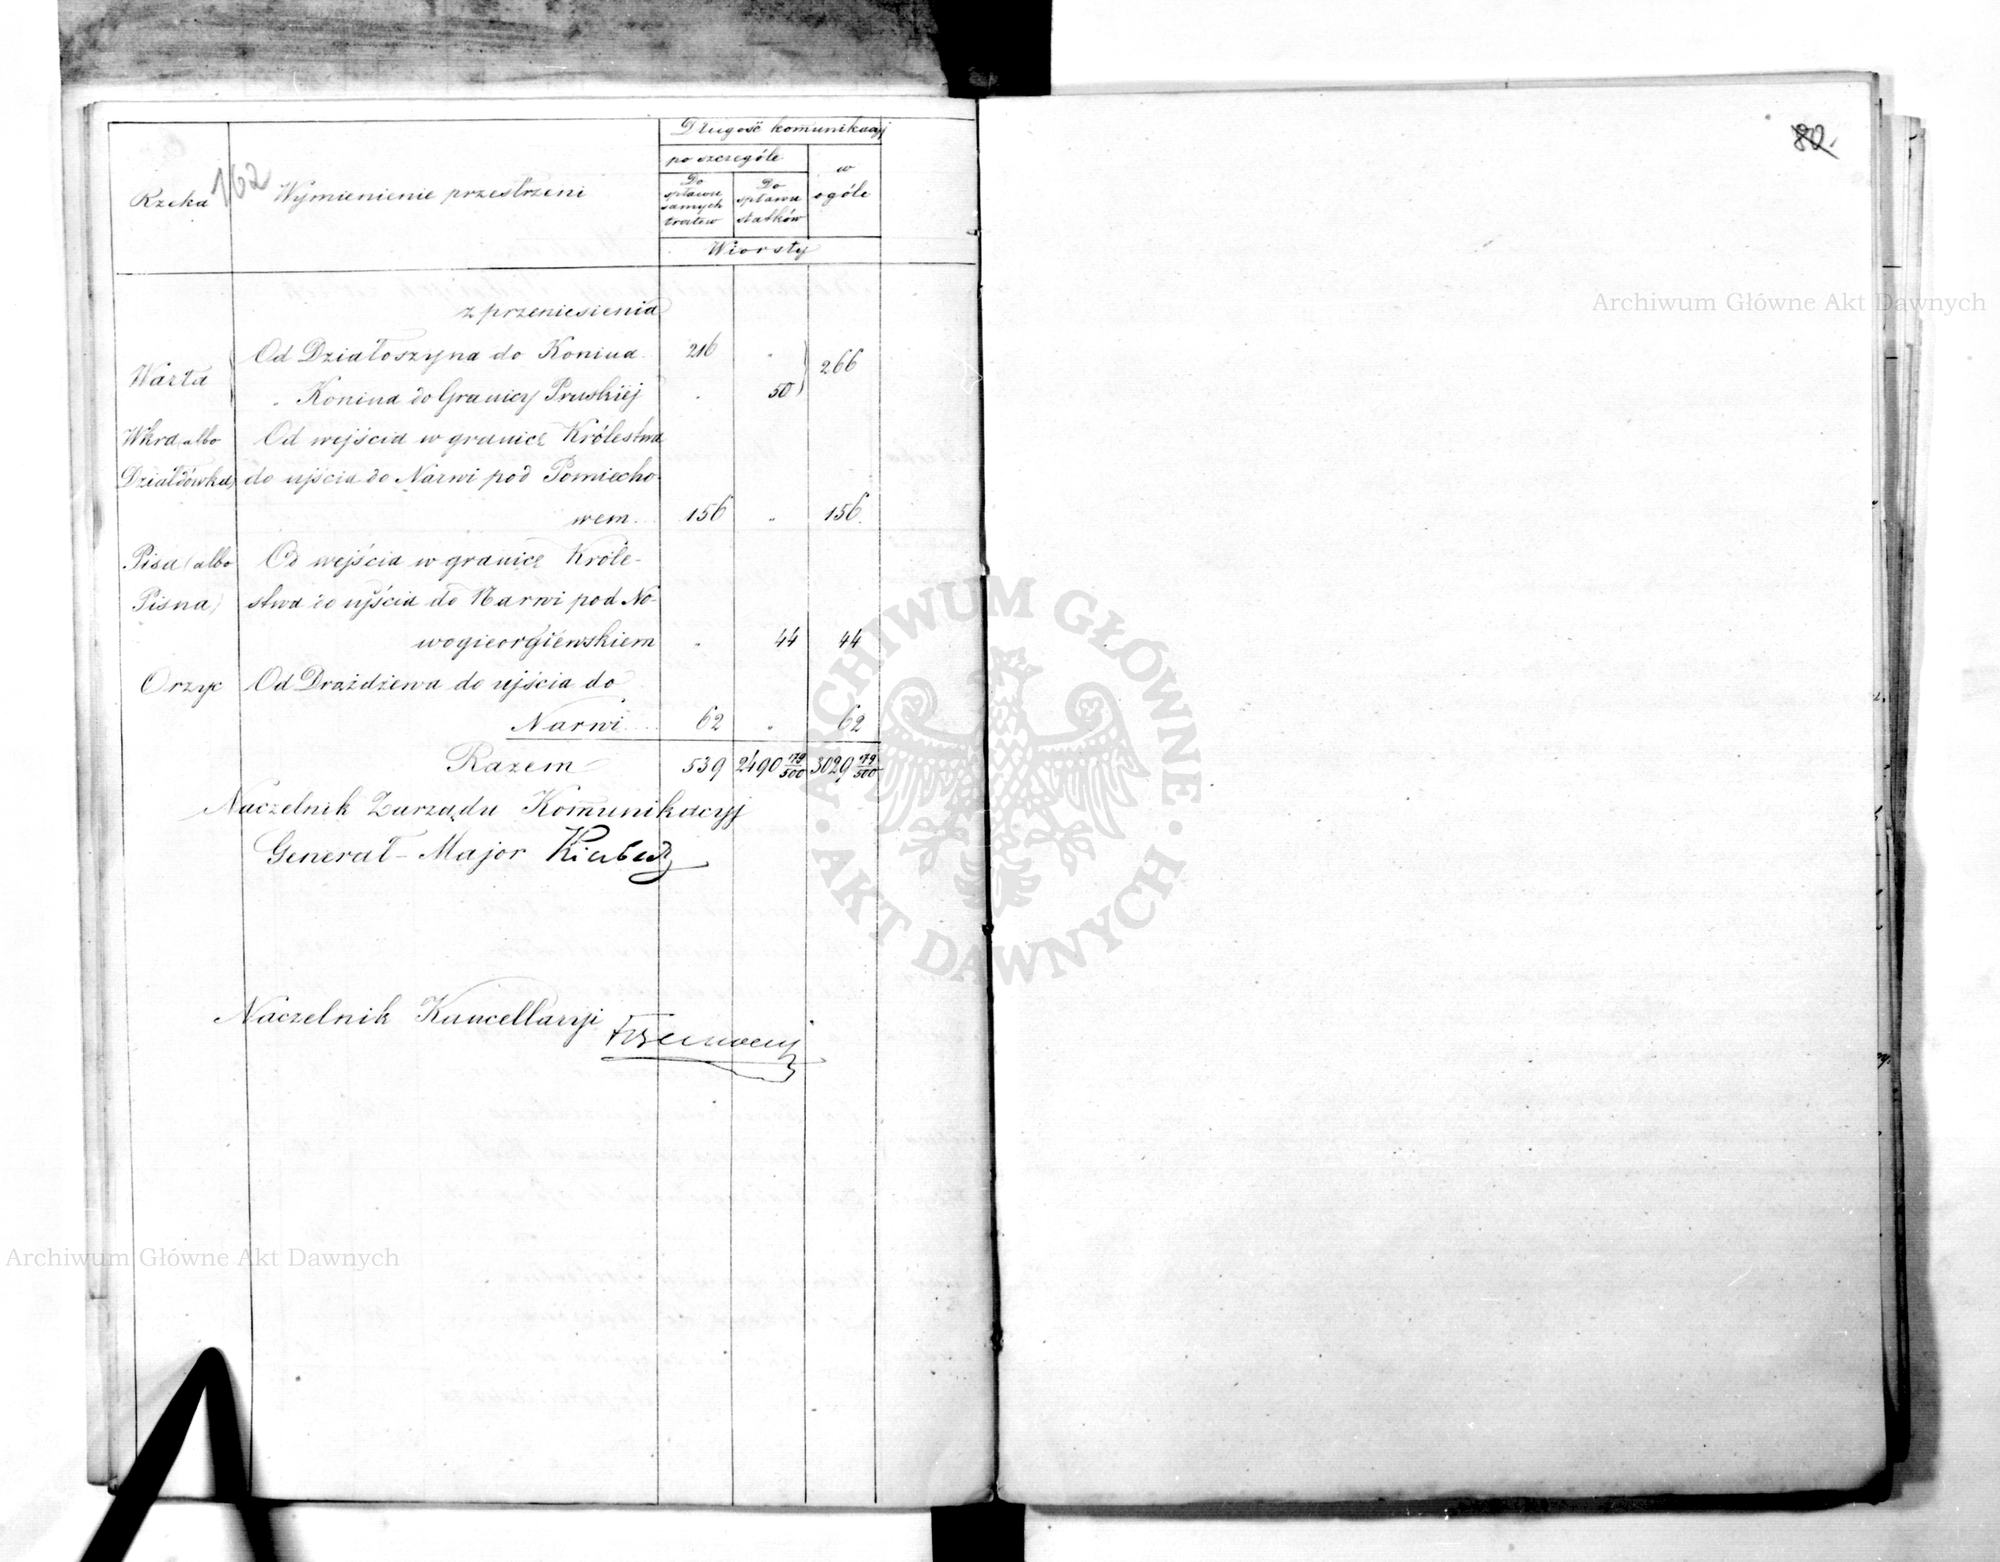 162
80.
Długość komunikacyj
po szczególe
w ogóle
Rzeka
Wymienienie przestrzeni
Do spławu samych tratew
Do spławu statków
Wiorsty
z przeniesienia
Warta
Od Działoszyna do Konina 216 „
266
„ Konina do Granicy Pruskiéj „ 50
Wkra (albo Od wejścia w granice Królestwa
Działdówka) do ujścia do Narwi pod Pomiecho-
wem 156 „ 156.
Pisa (albo Od wejścia w granice Króle-
Pisna) stwa do ujścia do Narwi pod No-
wogieorgiewskiem „ 44 44
Orzyc Od Drążdżewa do ujścia do
Narwi 62 „ 62
Razem 539 2490 79/500 3029 79/500
Naczelnik Zarządu Komunikacyj
Generał-Major Kierbedź
Naczelnik Kancellaryi
Archiwum Główne Akt Dawnych
ARCHIWUM GŁÓWNE
· AKT DAWNYCH ·
Archiwum Główne Akt Dawnych